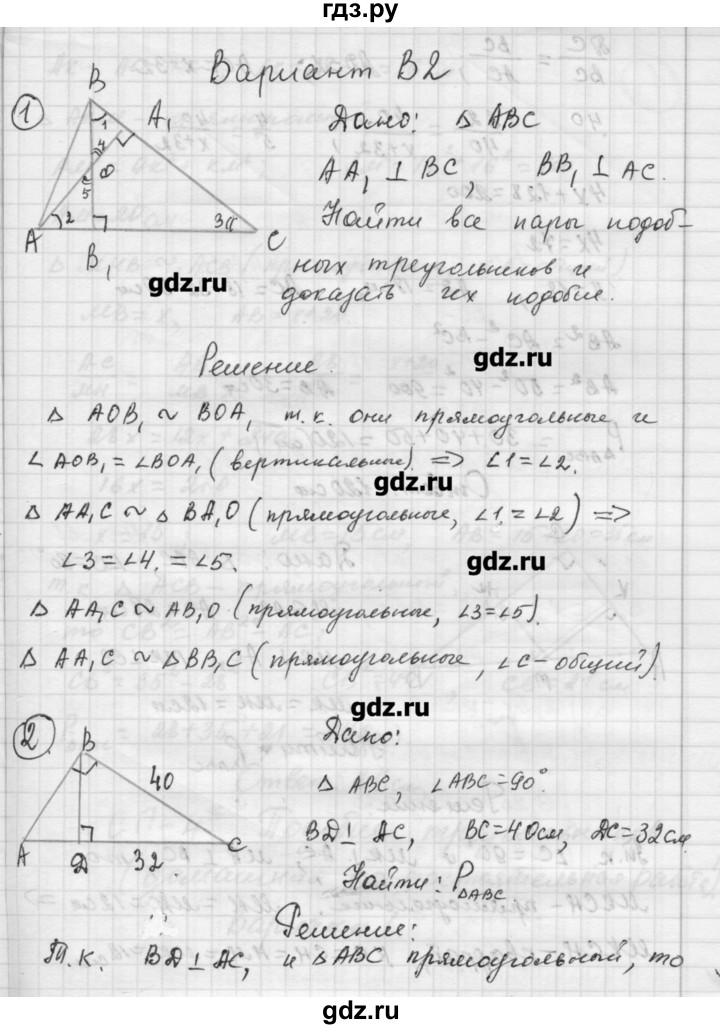 гдз.ру
Вариант В2
1
B
1
A₁
4
O
5
A
2
3
C
B₁
Дано: △ ABC
AA₁ ⊥ BC, BB₁ ⊥ AC.
Найти все пары подоб-
ных треугольников и
доказать их подобия.
gdz.ru
gdz.ru
Решение.
△ AOB₁ ~ BOA₁ т.к. они прямоугольные и
∠AOB₁ = ∠BOA₁ (вертикальные). => ∠1=∠2.
gdz.ru
△ AA₁C ~ △ BA₁O (прямоугольные, ∠1=∠2) =>
∠3=∠4.=∠5.
gdz.ru
△ AA₁C ~ AB₁O (прямоугольные, ∠3=∠5).
△ AA₁C ~ △BB₁C (прямоугольные, ∠C-общий).
gdz.ru
2
B
40
A
D
32
C
Дано:
△ ABC, ∠ABC=90°.
BD⊥ AC, BC=40см, DC=32см.
Найти: P△ABC
gdz.ru
gdz.ru
Решение:
Т.к. BD⊥AC, и △ABC прямоугольный, то
gdz.ru